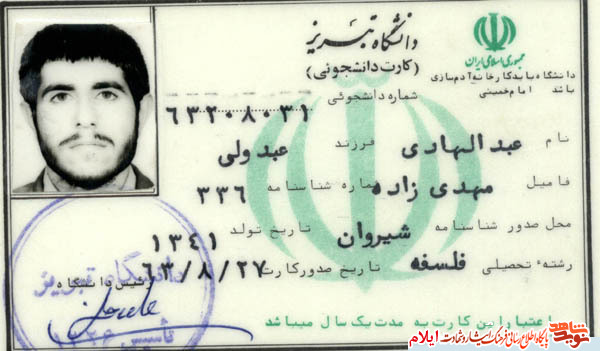 جمهوری اسلامی ایران
دانشگاه تبریز
(کارت دانشجوئی)
دانشگاه باید کارخانه آدم‌سازی
باشد امام خمینی
شماره دانشجوئی ۶۳۲۰۸۰۳۱
نام عبدالهادی فرزند عبدولی
فامیل مهدی زاده شماره شناسنامه ۳۳۶
محل صدور شناسنامه شیروان تاریخ تولد ۱۳۴۱
رشته تحصیلی فلسفه تاریخ صدور کارت ۶۳/۸/۲۷
رئیس دانشگاه
دانشگاه تبریز
تأسیس ۱۳۲۶
اعتبار این کارت به مدت یک سال میباشد
نوید شاهد
پایگاه اطلاع رسانی فرهنگ ایثار و شهادت ایلام